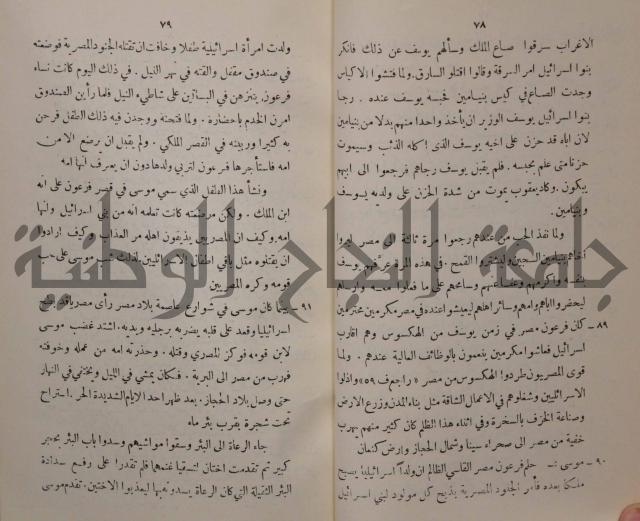 ٧٨
الاغراب سرقوا صاع الملك وسألهم يوسف عن ذلك فانكر
بنوا اسرائيل امر السرقة وقالوا اقتلوا السارق. ولما فتشوا الاكياس
وجدت الصاع في كيس بنيامين فحبسه يوسف عنده. رجا
بنوا اسرائيل يوسف الوزير ان يأخذ واحدا منهم بدلا من بنيامين
لان اباه قد حزن على اخيه يوسف الذي اكله الذئب وسيموت
حزنا متى علم بحبسه. فلم يقبل يوسف رجاهم فرجعوا الى ابيهم
يبكون. وكاد يعقوب يموت من شدة الحزن على ولديه يوسف
وبنيامين.
ولما نفذ الحب من عندهم رجعوا مرة ثالثة الى مصر ليروا
اخاهم بنيامين السجين وليشتروا القمح. في هذه المرة عرفهم يوسف
بنفسه واكرمهم وعفا عنهم وسامحهم على ما فعلوا معه وارسلهم
ليحضروا اباهم وامهم وسائر اهلهم ليعيشوا عنده في مصر مكرمين محترمين
٨٩ - كان فرعون مصر في زمن يوسف من الهكسوس وهم اقارب
اسرائيل فعاشوا مكرمين ينعمون بالوظائف العالية عندهم. ولما
قوى المصريون طردوا الهكسوس من مصر «راجع ف ٥٩» واذلوا
الاسرائليين وشغلوهم في الاعمال الشاقة مثل بناء المدن وزرع الارض
وصناعة الخزف بالسخرة وفي اثناء هذا الظلم كان كثير منهم يهرب
خفية من مصر الى صحراء سينا وشمال الحجاز وارض كنعان
٩٠ - موسى : حلم فرعون مصر القاسي الظالم ان ولداً اسرائيليا يصبح
ملكا بعده فأمر الجنود المصرية بذبح كل مولود لبني اسرائيل
٧٩
ولدت امرأة اسرائيلية طفلا وخافت ان تقتله الجنود المصرية فوضعته
في صندوق مقفل والقته في نهر النيل. في ذلك اليوم كانت نساء
فرعون يتنزهن في البساتين على شاطيء النيل فلما رأين الصندوق
امرن الخدم باحضاره. ولما فتحنه ووجدن فيه ذلك الطفل فرحن
به كثيرا وربينه في القصر الملكي. ولم يقبل ان يرضع الا من
امه فاستأجرها فرعون لتربي ولدها دون ان يعرف انها امه
ونشأ هذا الطفل الذي سمي موسى في قصر فرعون على انه
ابن الملك. ولكن مرضعته كانت تعلمه انه من بني اسرائيل وانها
امه وكيف ان المصريين يذيقون اهله مر العذاب وكيف ارادوا
ان يقتلوه مثل باقي اطفال الاسرائليين لذلك شب موسى على حب
قومه وكره المصريين
٩١ - بينما كان موسى في شوارع عاصمة بلاد مصر رأى مصريا قد بطح
اسرائيليا وقعد على قلبه يضربه برجليه ويديه. اشتد غضب موسى
لابن قومه فوكز المصري وقتله. وحذرته امه من عمله وخوفته
فهرب من مصر الى البرية. فكان يمشي في الليل ويختفي في النهار
حتى وصل بلاد الحجاز. بعد ظهر احد الايام الشديدة الحر استراح
تحت شجرة بقرب بئر ماء
جاء الرعاة الى البئر وسقوا مواشيهم وسدوا باب البئر بحجر
كبير ثم تقدمت اختان لتسقيا غنمهما فلم تقدرا على رفع سدادة
البئر الثقيلة التي كان الرعاة يسدونه بها ليعذبوا الاختين. تقدم موسى
جامعة النجاح الوطنية